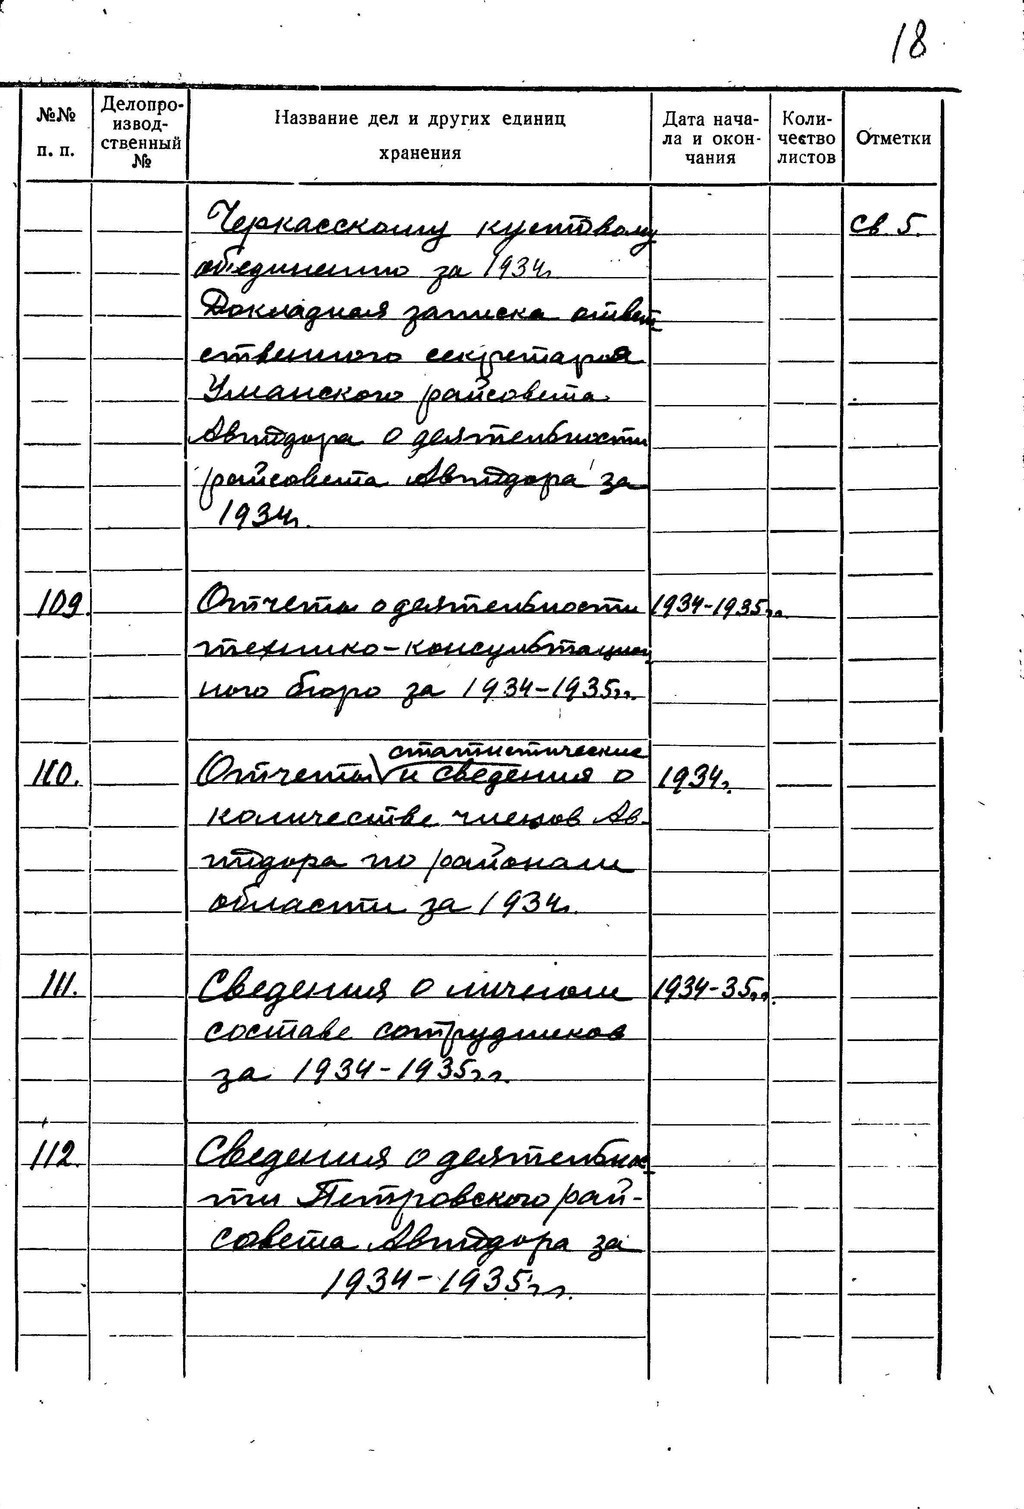 18
№№ п. п.
Делопро-
извод-
ственный
№
Название дел и других единиц
хранения
Дата нача-
ла и окон-
чания
Коли-
чество
листов
Отметки
Черкасскому кустовому
св 5.
объединению за 1934г.
Докладная записка ответ-
ственного секретаря
Уманского райсовета
Автодора о деятельности
райсовета Автодора за
1934г.
109. Отчеты о деятельности 1934-1935гг.
технико-консультацион
ного бюро за 1934-1935гг.
статистические
110. Отчеты и сведения о 1934г.
количестве членов Ав-
тодора по районам
области за 1934г.
111. Сведения о личном 1934-35гг.
составе сотрудников
за 1934-1935гг.
112. Сведения о деятельнос
ти Петровского рай-
совета Автодора за
1934-1935гг.